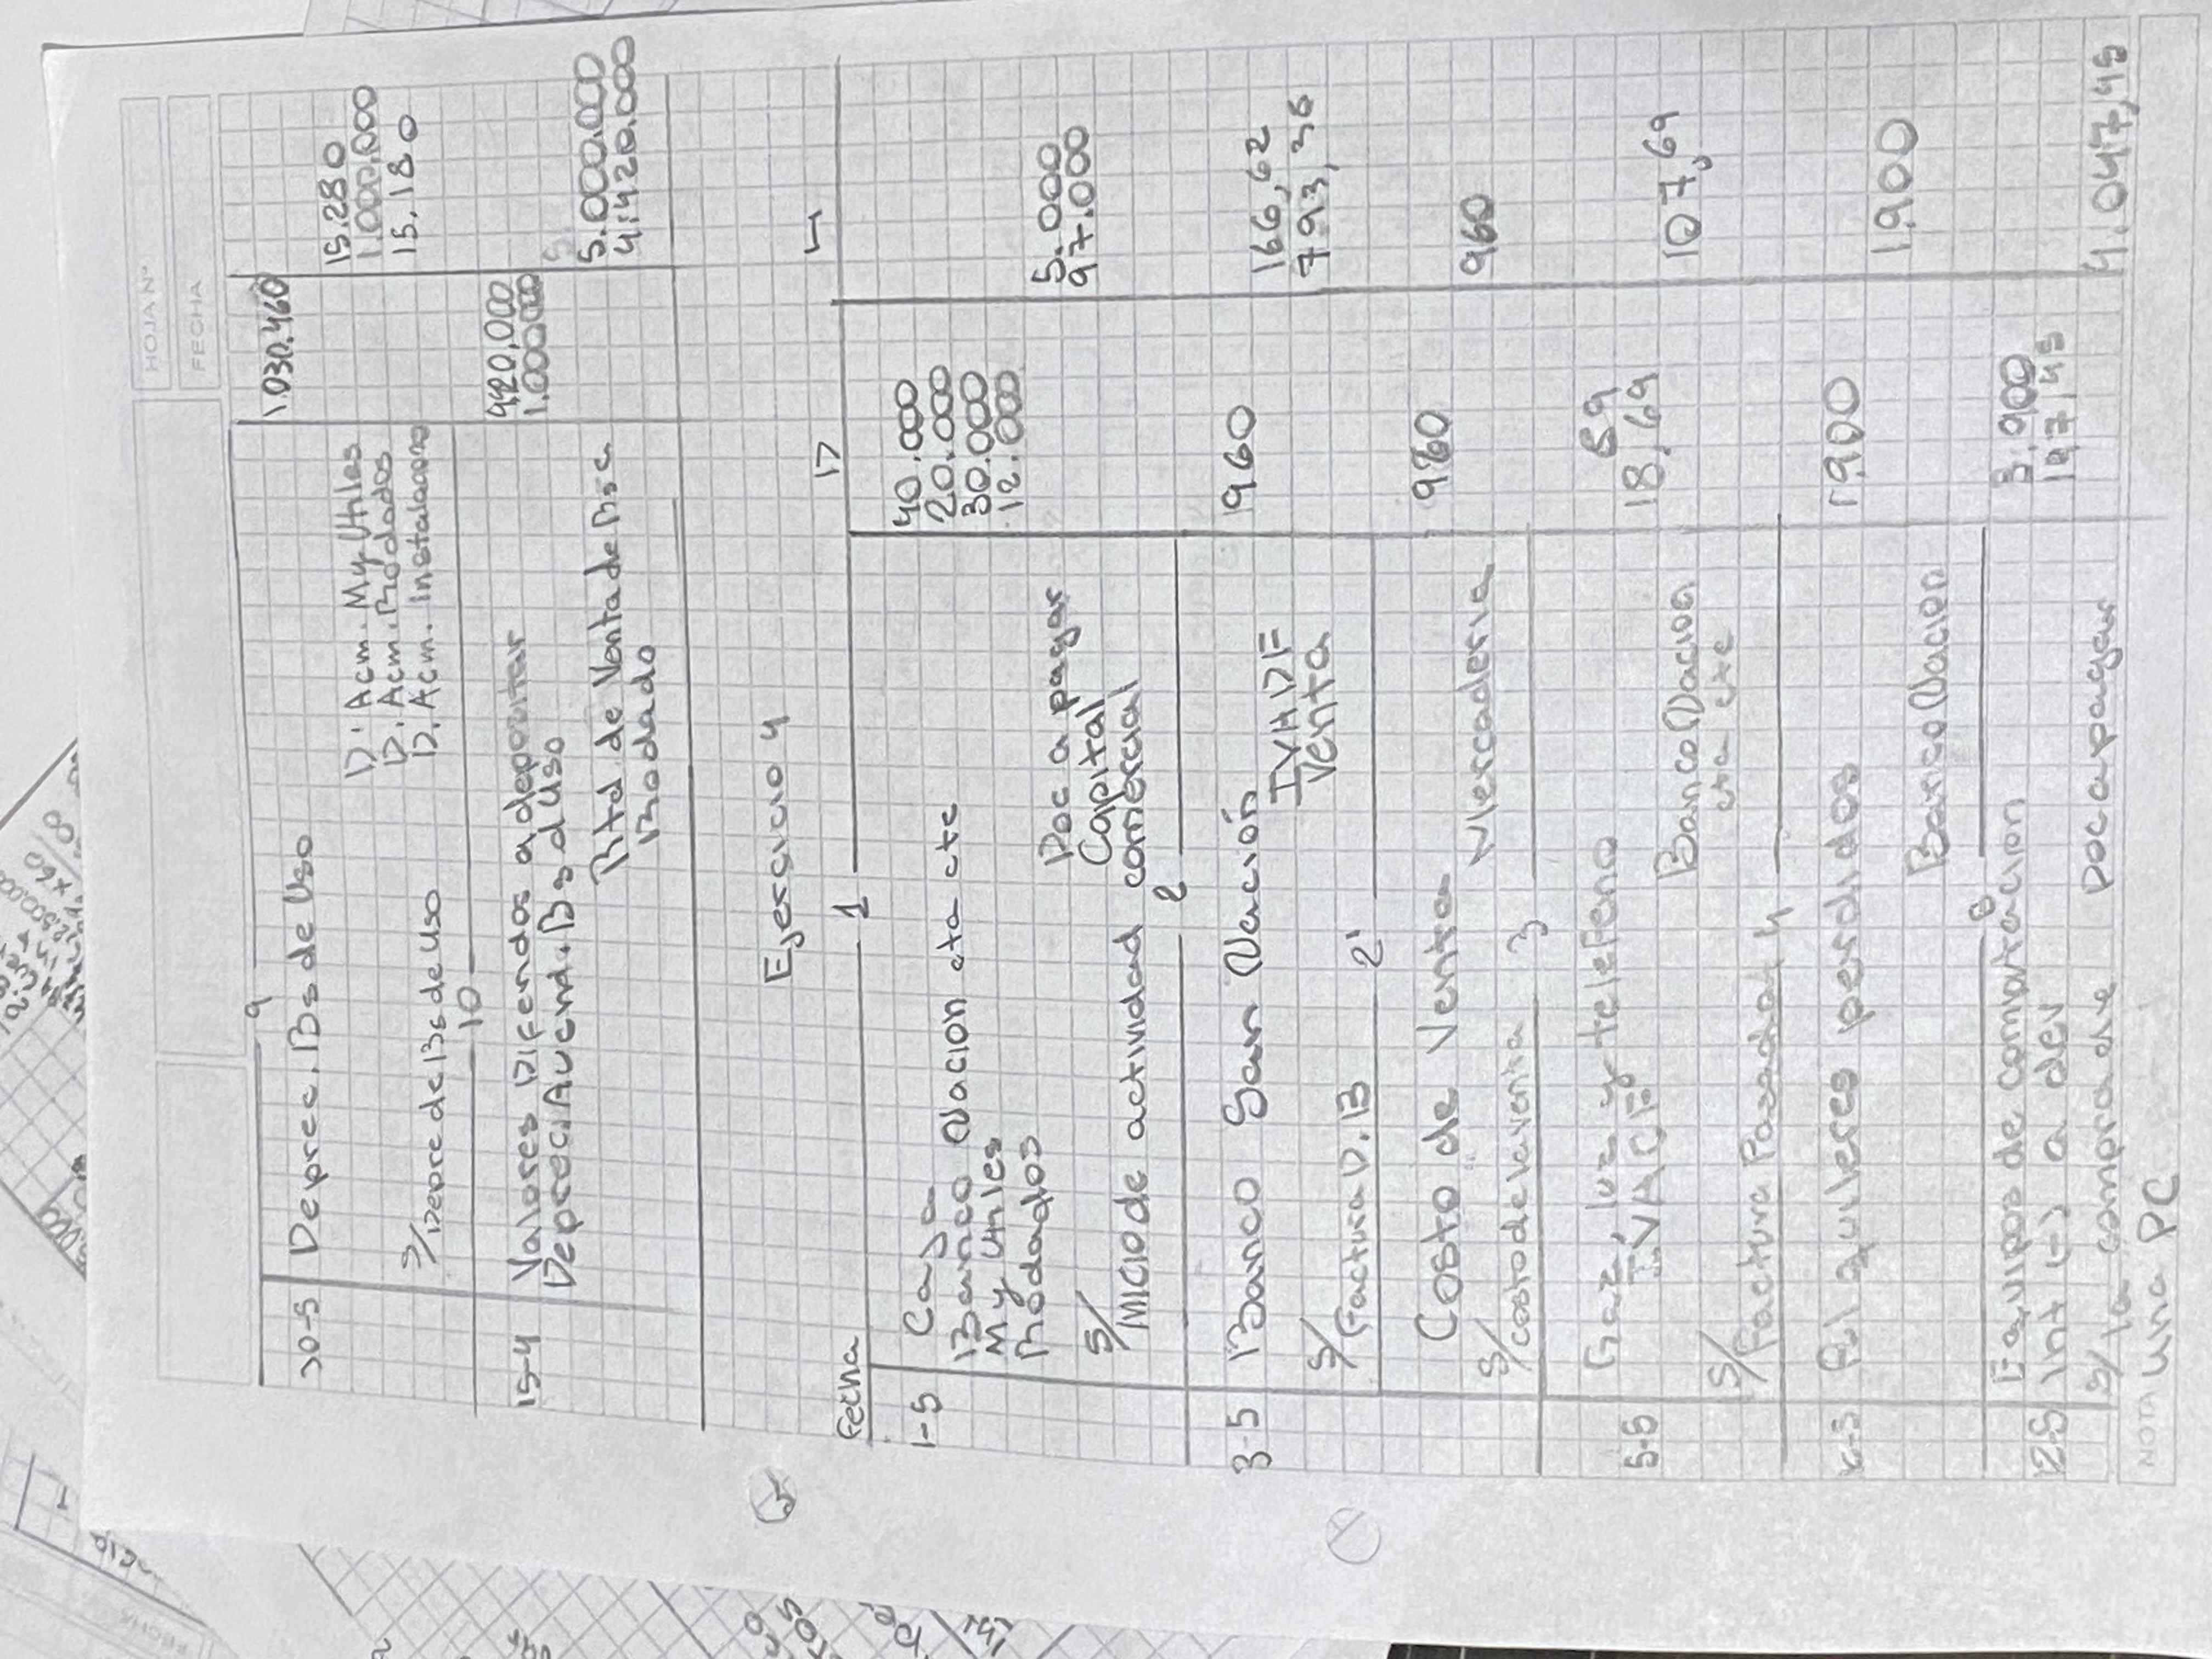 HOJA Nº
FECHA
9
30-5 Deprec. Bs de Uso 1.030.460
D. Acm. My Utiles 15.280
D. Acm. Rodados 1.000.000
D. Acm. Instalaciones 15.180
S/Depre de Bs de Uso
10
15-4 Valores Diferidos a depositar 4.420.000
Deprec. Acumd. Bs d Uso 1.000.000
Rtd. de Venta de Bs c 5.000.000
Rodado 4.420.000
Ejercicio 4
Fecha 1 D H
1-5 Caja 40.000
Banco Nacion cta cte 20.000
M y Utiles 30.000
Rodados 12.000
Doc a pagar 5.000
Capital 97.000
S/
inicio de actividad comercial
2
3-5 Banco San Nación 960
IVA DF 166,62
Venta 793,36
S/
Factura D.B
2'
Costo de Venta 960
Mercaderia 960
S/costo de la venta
3
5-5 Gaz, luz y telefono 89
IVA CF 18,69
Banco Nacion 107,69
cta cte
S/
Factura Pasada
4
Alquileres perdidos 1.900
Banco Nacion 1.900
Equipos de computacion 3.900
12-5 int (-) a dev 197,45
S/ la compra de Doc a pagar 4.047,45
una PC
NOTA